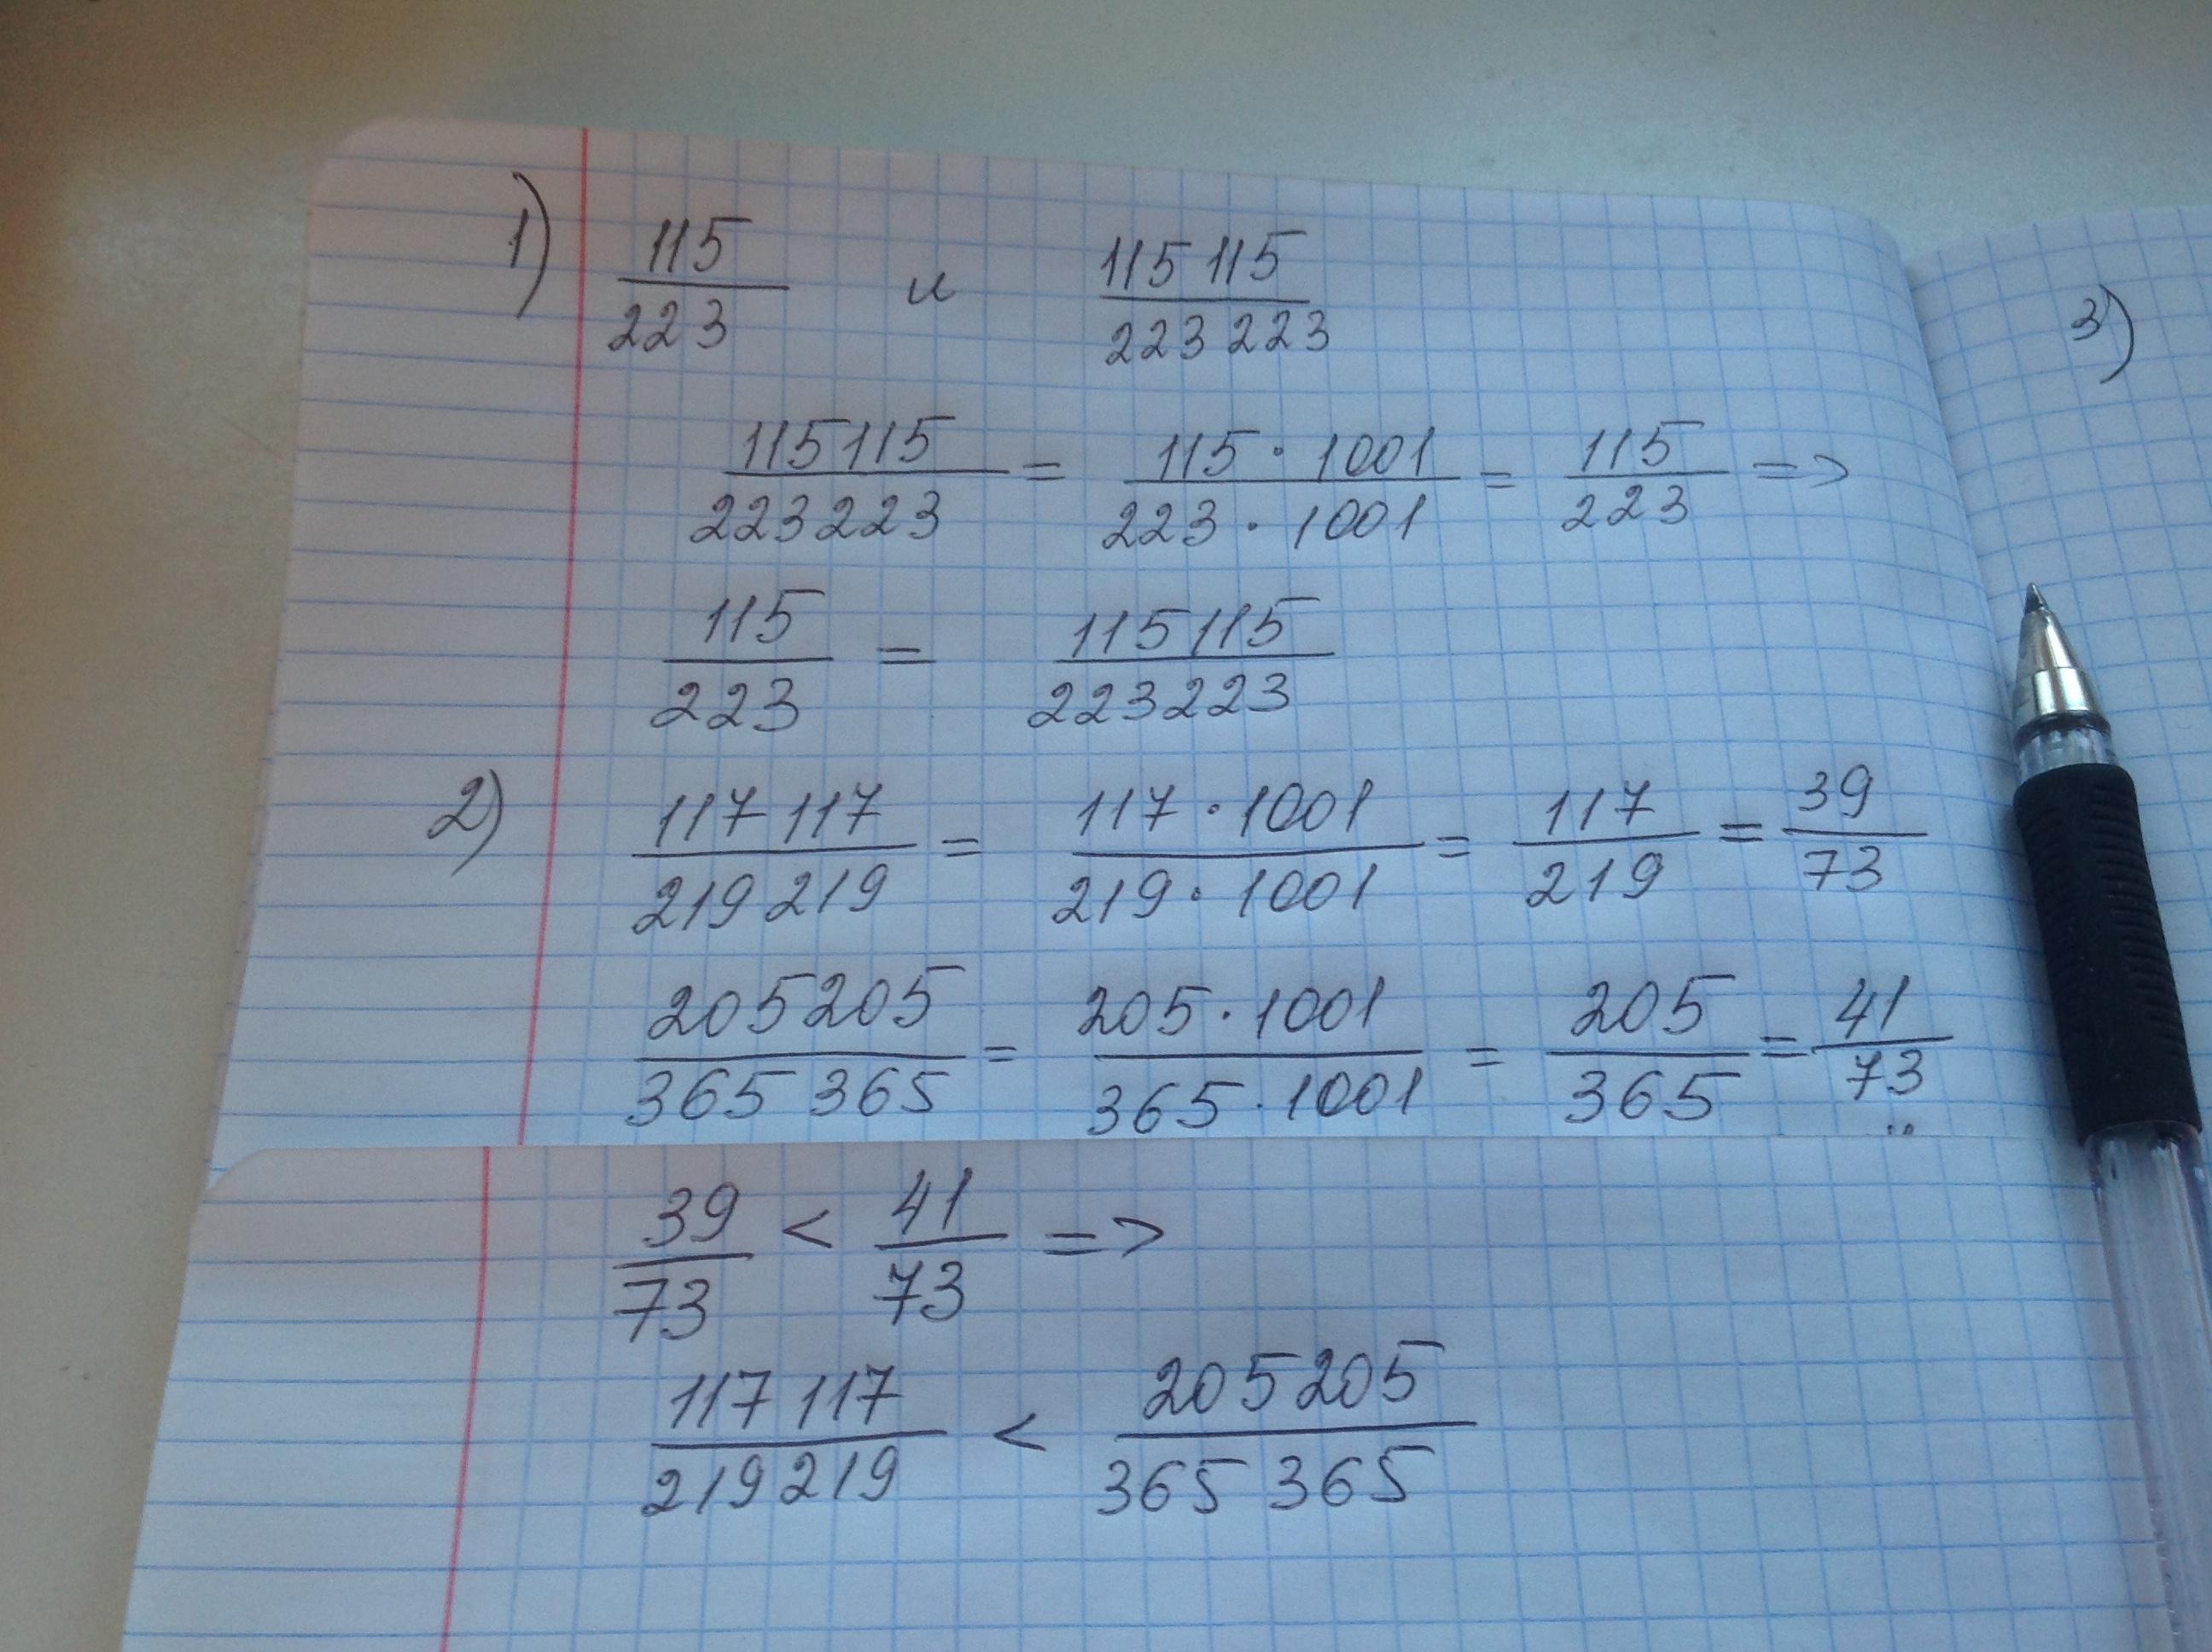 1) 115/223 и 115 115/223 223
115115/223223 = 115 · 1001/223 · 1001 = 115/223 =>
115/223 = 115115/223223
2) 117 117/219 219 = 117 · 1001/219 · 1001 = 117/219 = 39/73
205205/365 365 = 205 · 1001/365 · 1001 = 205/365 = 41/73
39/73 < 41/73 =>
117 117/219 219 < 205 205/365 365
3)